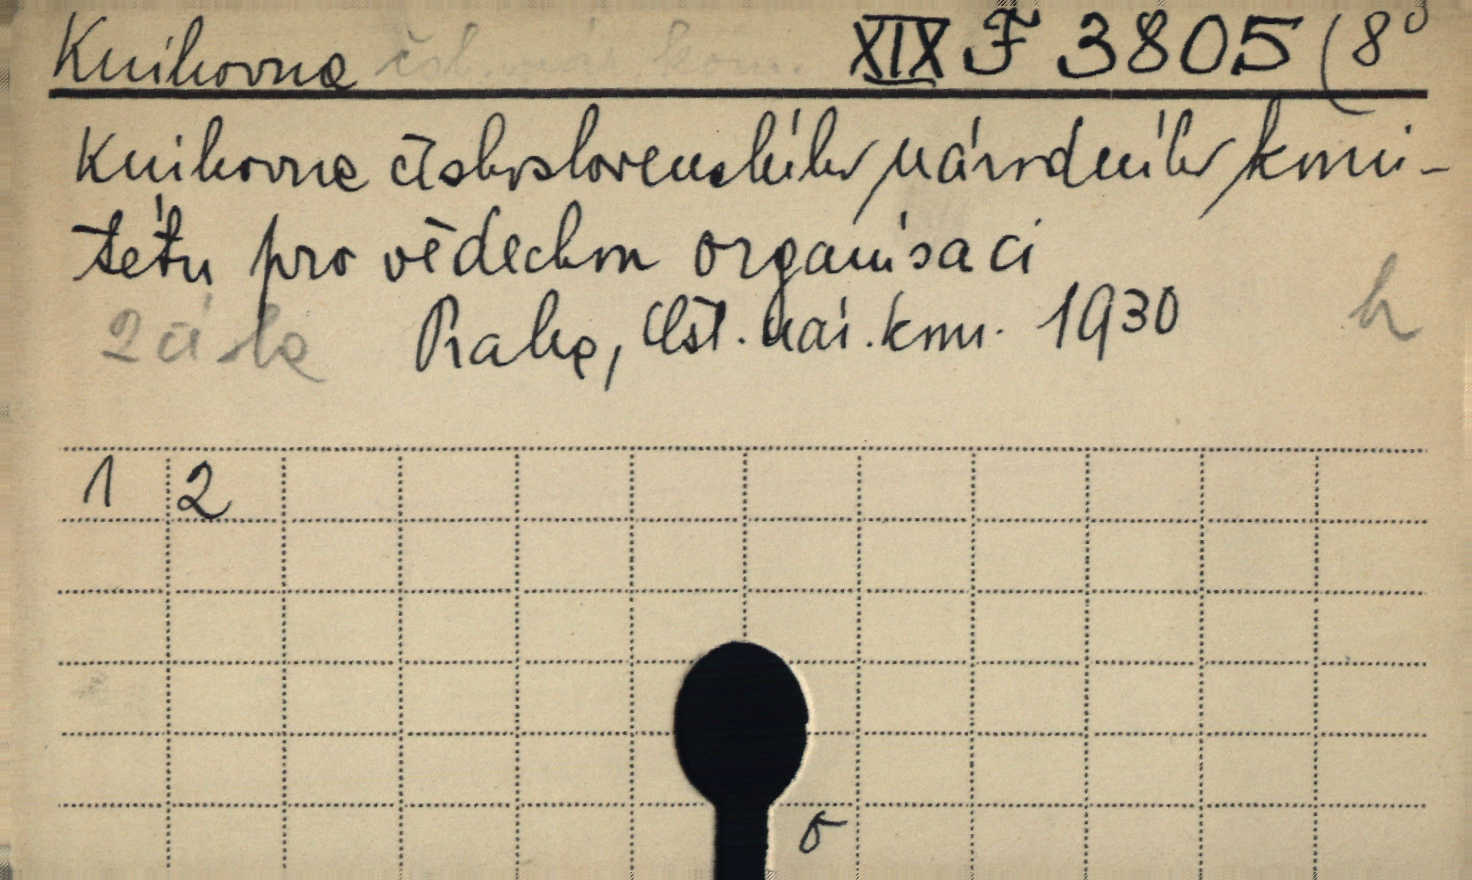 Knihovna čsl. nár. kom. XIX F 3805 (8°
Knihovna československého národního komi-
tétu pro vědeckou organisaci
2 čísla Praha, Čsl. nár. kom. 1930 h
1 2
σ